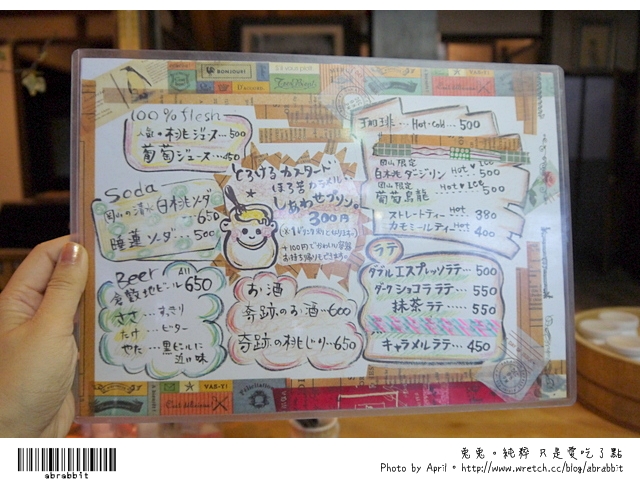 100% flesh
人気。桃ジュース…500
葡萄ジュース…450
Soda
岡山の清水白桃ソーダ
…650
睡蓮ソーダ…500
Beer All
倉敷地ビール 650
ささ…すっきり
たけ…ビター
やた…黒ビールに
近い味
とろけるカスタード
ほろ苦カラメル
しあわせプリン。
300円
+100円でかわいい容器
お持ち帰りもできます。
お酒
奇跡のお酒…600
奇跡の桃じり…650
珈琲…Hot・cold…500
岡山限定
白桃ダージリン Hot♥Ice 500
岡山限定
葡萄烏龍 Hot♥Ice 500
ストレートティー Hot 380
カモミールティー Hot 400
ラテ
ダブルエスプレッソラテ…500
ダークショコララテ……550
抹茶ラテ……550
キャラメルラテ……450
BONJOUR!
VAS-Y!
abrabbit
兔兔。純粹 只是愛吃了點
Photo by April。http://www.wretch.cc/blog/abrabbit